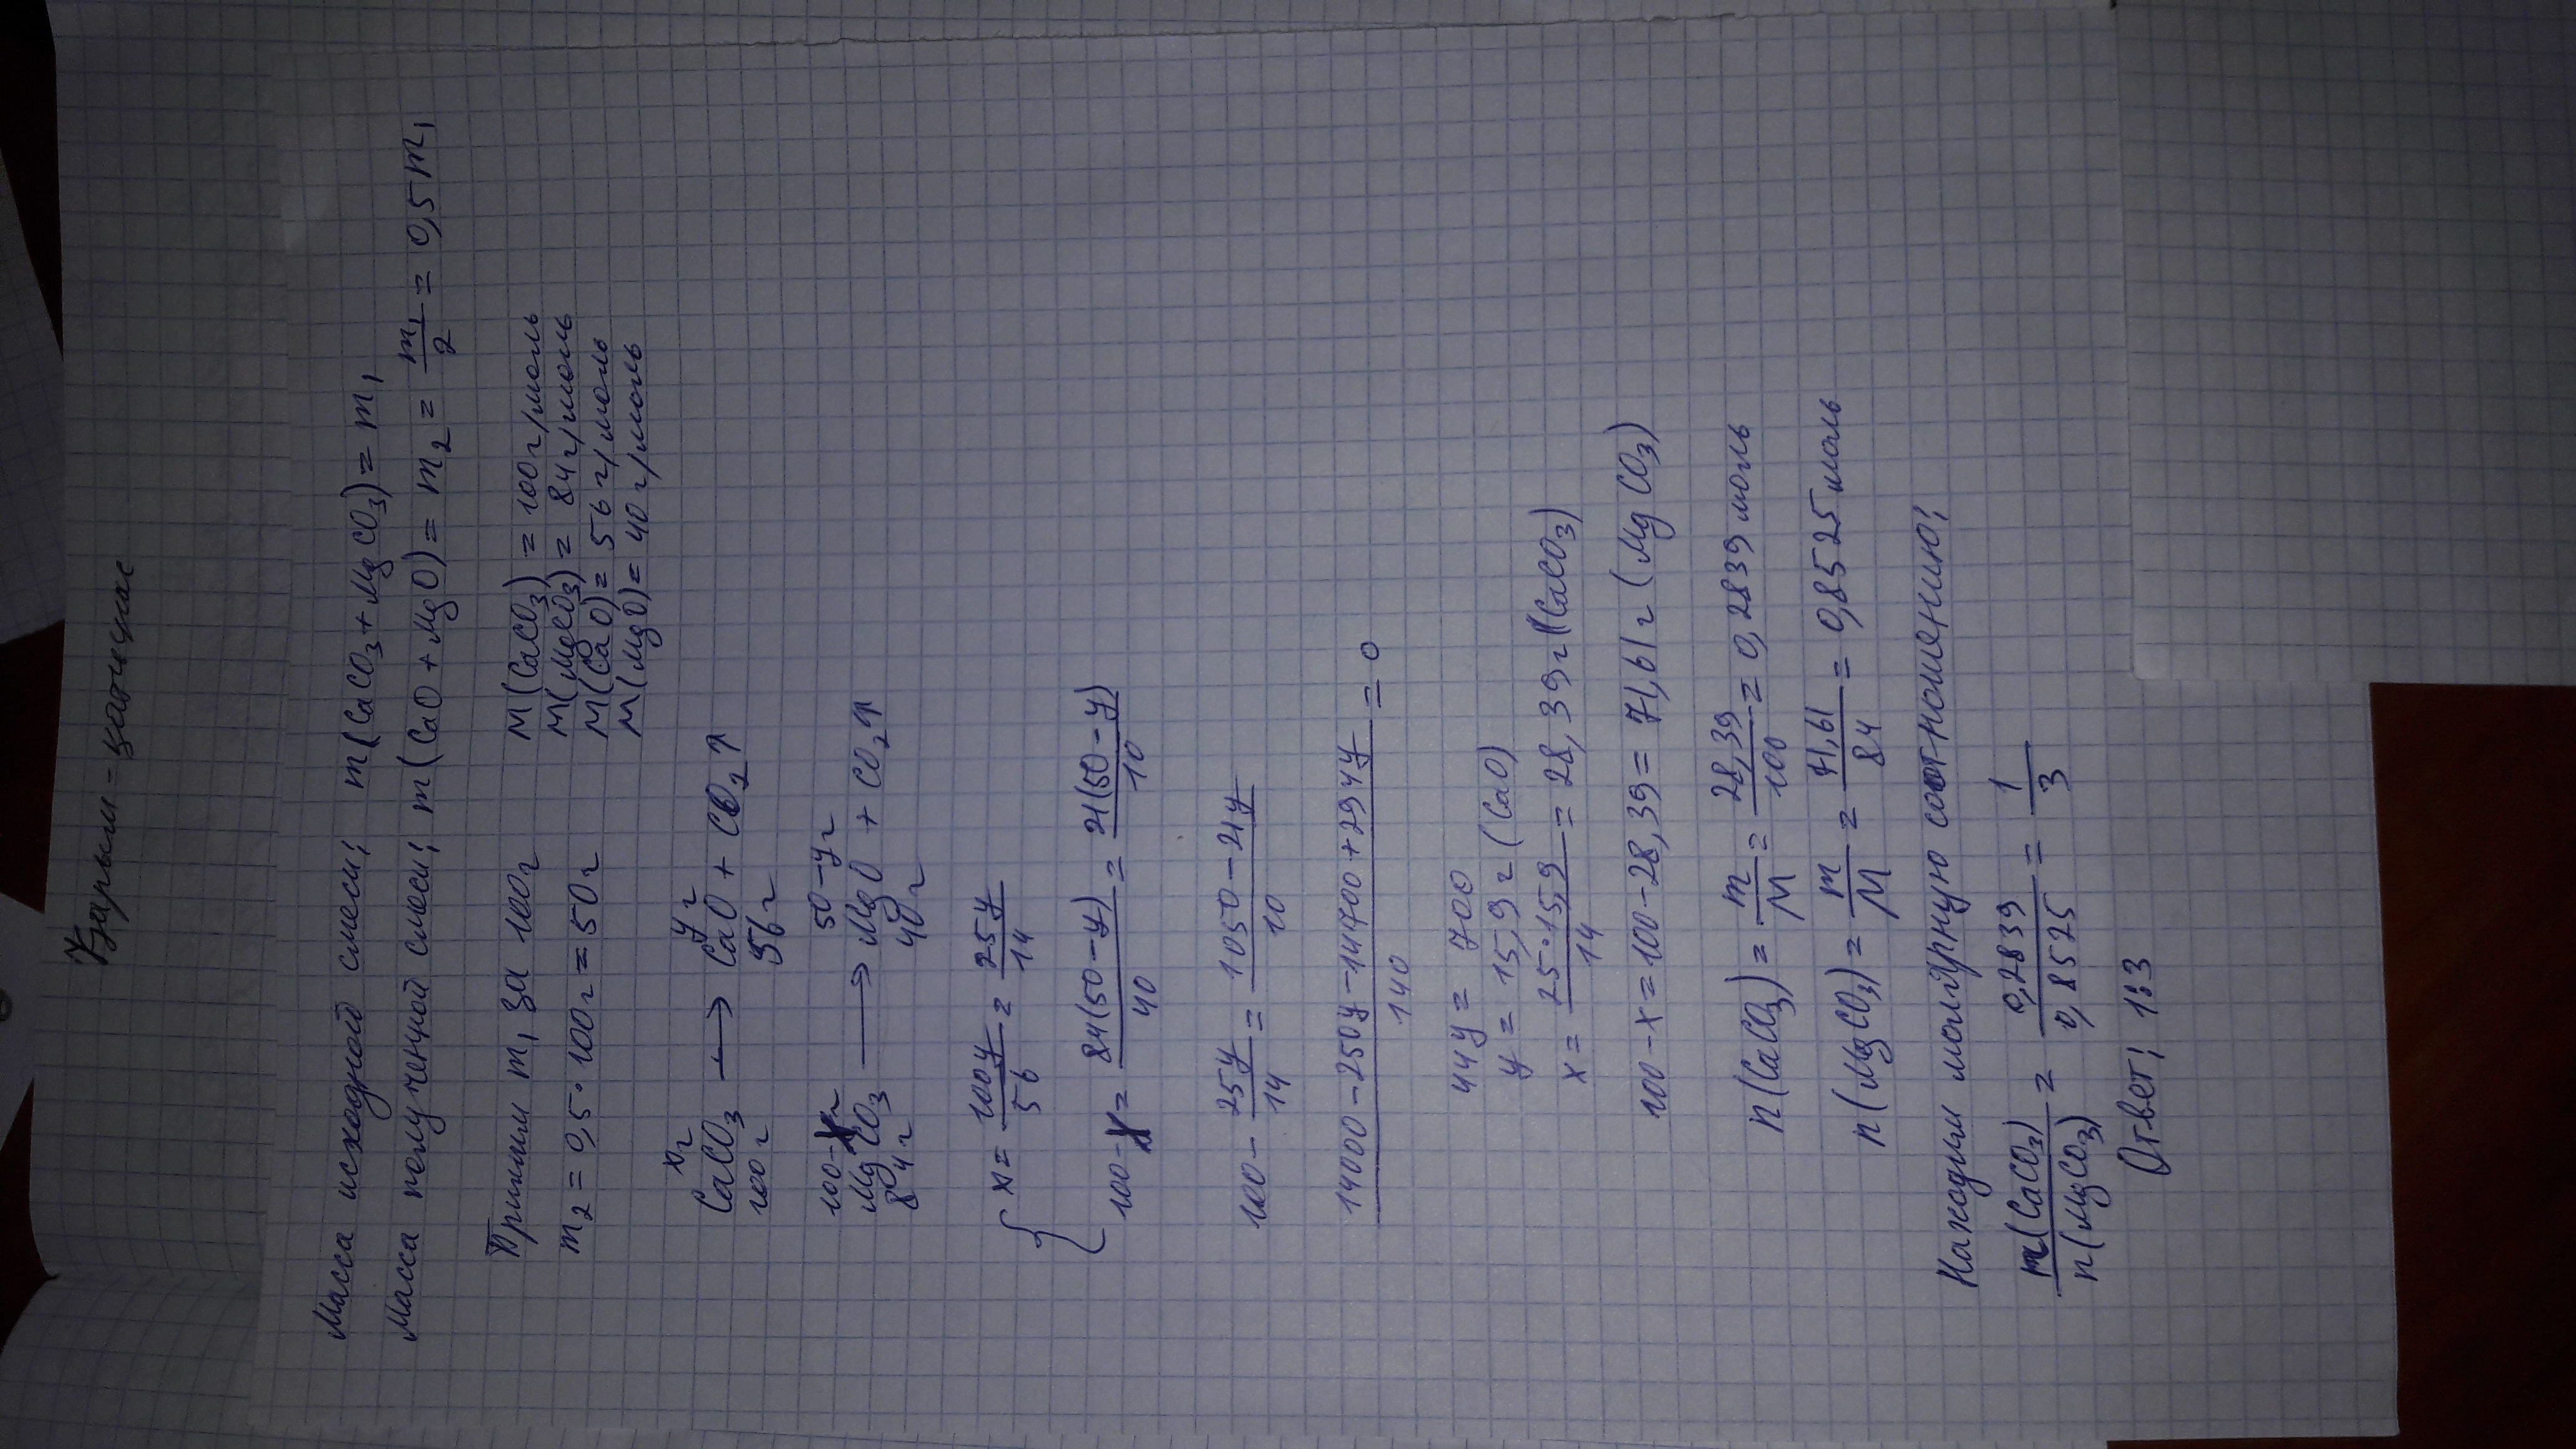 Масса исходной смеси; m(CaCO3 + MgCO3) = m1
Масса полученной смеси; m(CaO + MgO) = m2 = m1/2 = 0,5 m1
Примим m1 за 100г
m2 = 0,5·100г = 50г
M(CaCO3) = 100г/моль
M(MgCO3) = 84г/моль
M(CaO) = 56 г/моль
M(MgO) = 40 г/моль
xг yг
CaCO3 → CaO + CO2↑
100г 56г
100-xг 50-yг
MgCO3 → MgO + CO2↑
84г 40г
{ x = 100y/56 = 25y/14
100-x = 84(50-y)/40 = 21(50-y)/10
100 - 25y/14 = 1050-21y/10
14000-250y-14700+294y/140 = 0
44y = 700
y = 15,9г (CaO)
x = 25·15,9/14 = 28,39г (CaCO3)
100-x = 100-28,39 = 71,61г (MgCO3)
n(CaCO3) = m/M = 28,39/100 = 0,2839 моль
n(MgCO3) = m/M = 71,61/84 = 0,8525 моль
Находим молярную соотношению;
n(CaCO3)/n(MgCO3) = 0,2839/0,8525 = 1/3
Ответ; 1:3